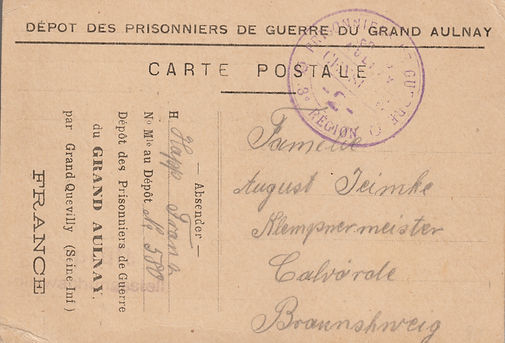 DÉPOT DES PRISONNIERS DE GUERRE DU GRAND AULNAY
CARTE POSTALE
PRISONNIERS DE GUERRE
-2-
3e RÉGION
Familie
August Teimke
Klempnermeister
Calvörde
Braunshweig
— Absender —
H Happ Franz
No Mle au Dépôt No 580
Dépôt des Prisonniers de Guerre
du GRAND AULNAY.
par Grand Quevilly (Seine-Inf)
FRANCE